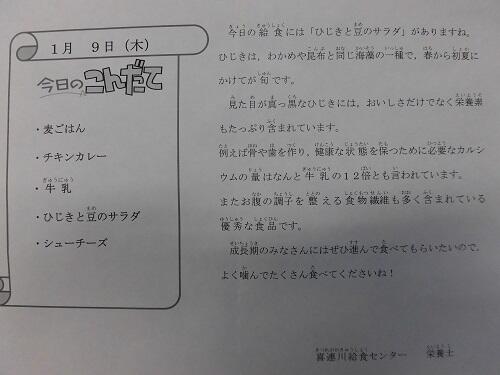 1月 9日(木)
今日のこんだて
・麦ごはん
・チキンカレー
・牛乳
・ひじきと豆のサラダ
・シューチーズ
今日の給食には「ひじきと豆のサラダ」がありますね。
ひじきは、わかめや昆布と同じ海藻の一種で、春から初夏に
かけてが旬です。
見た目が真っ黒なひじきには、おいしさだけでなく栄養素
もたっぷり含まれています。
例えば骨や歯を作り、健康な状態を保つために必要なカルシ
ウムの量はなんと牛乳の12倍とも言われています。
またお腹の調子を整える食物繊維も多く含まれている
優秀な食品です。
成長期のみなさんにはぜひ進んで食べてもらいたいので、
よく噛んでたくさん食べてくださいね！
喜連川給食センター 栄養士